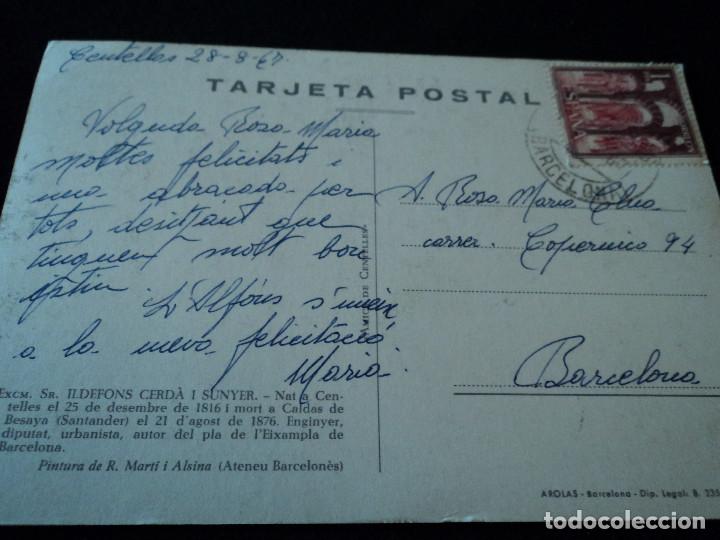 Centelles 28-8-67.
TARJETA POSTAL
Volguda Rosa-Maria
moltes felicitats i
una abraçada per
tots, desitjant que
tingueu molt bon
istiu.
L'Alfons s'uneix
a la meva felicitació
Maria.
A. Rosa Maria
carrer. Copernico 94
Barcelona
AMICS DE CENTELLES
ESPAÑA
BARCELONA
EXCM. SR. ILDEFONS CERDÀ I SUNYER. - Nat a Cen-
telles el 25 de desembre de 1816 i mort a Caldas de
Besaya (Santander) el 21 d'agost de 1876. Enginyer,
diputat, urbanista, autor del pla de l'Eixampla de
Barcelona.
Pintura de R. Martí i Alsina (Ateneu Barcelonès)
AROLAS - Barcelona - Dip. Legal: B. 235
todocoleccion.net